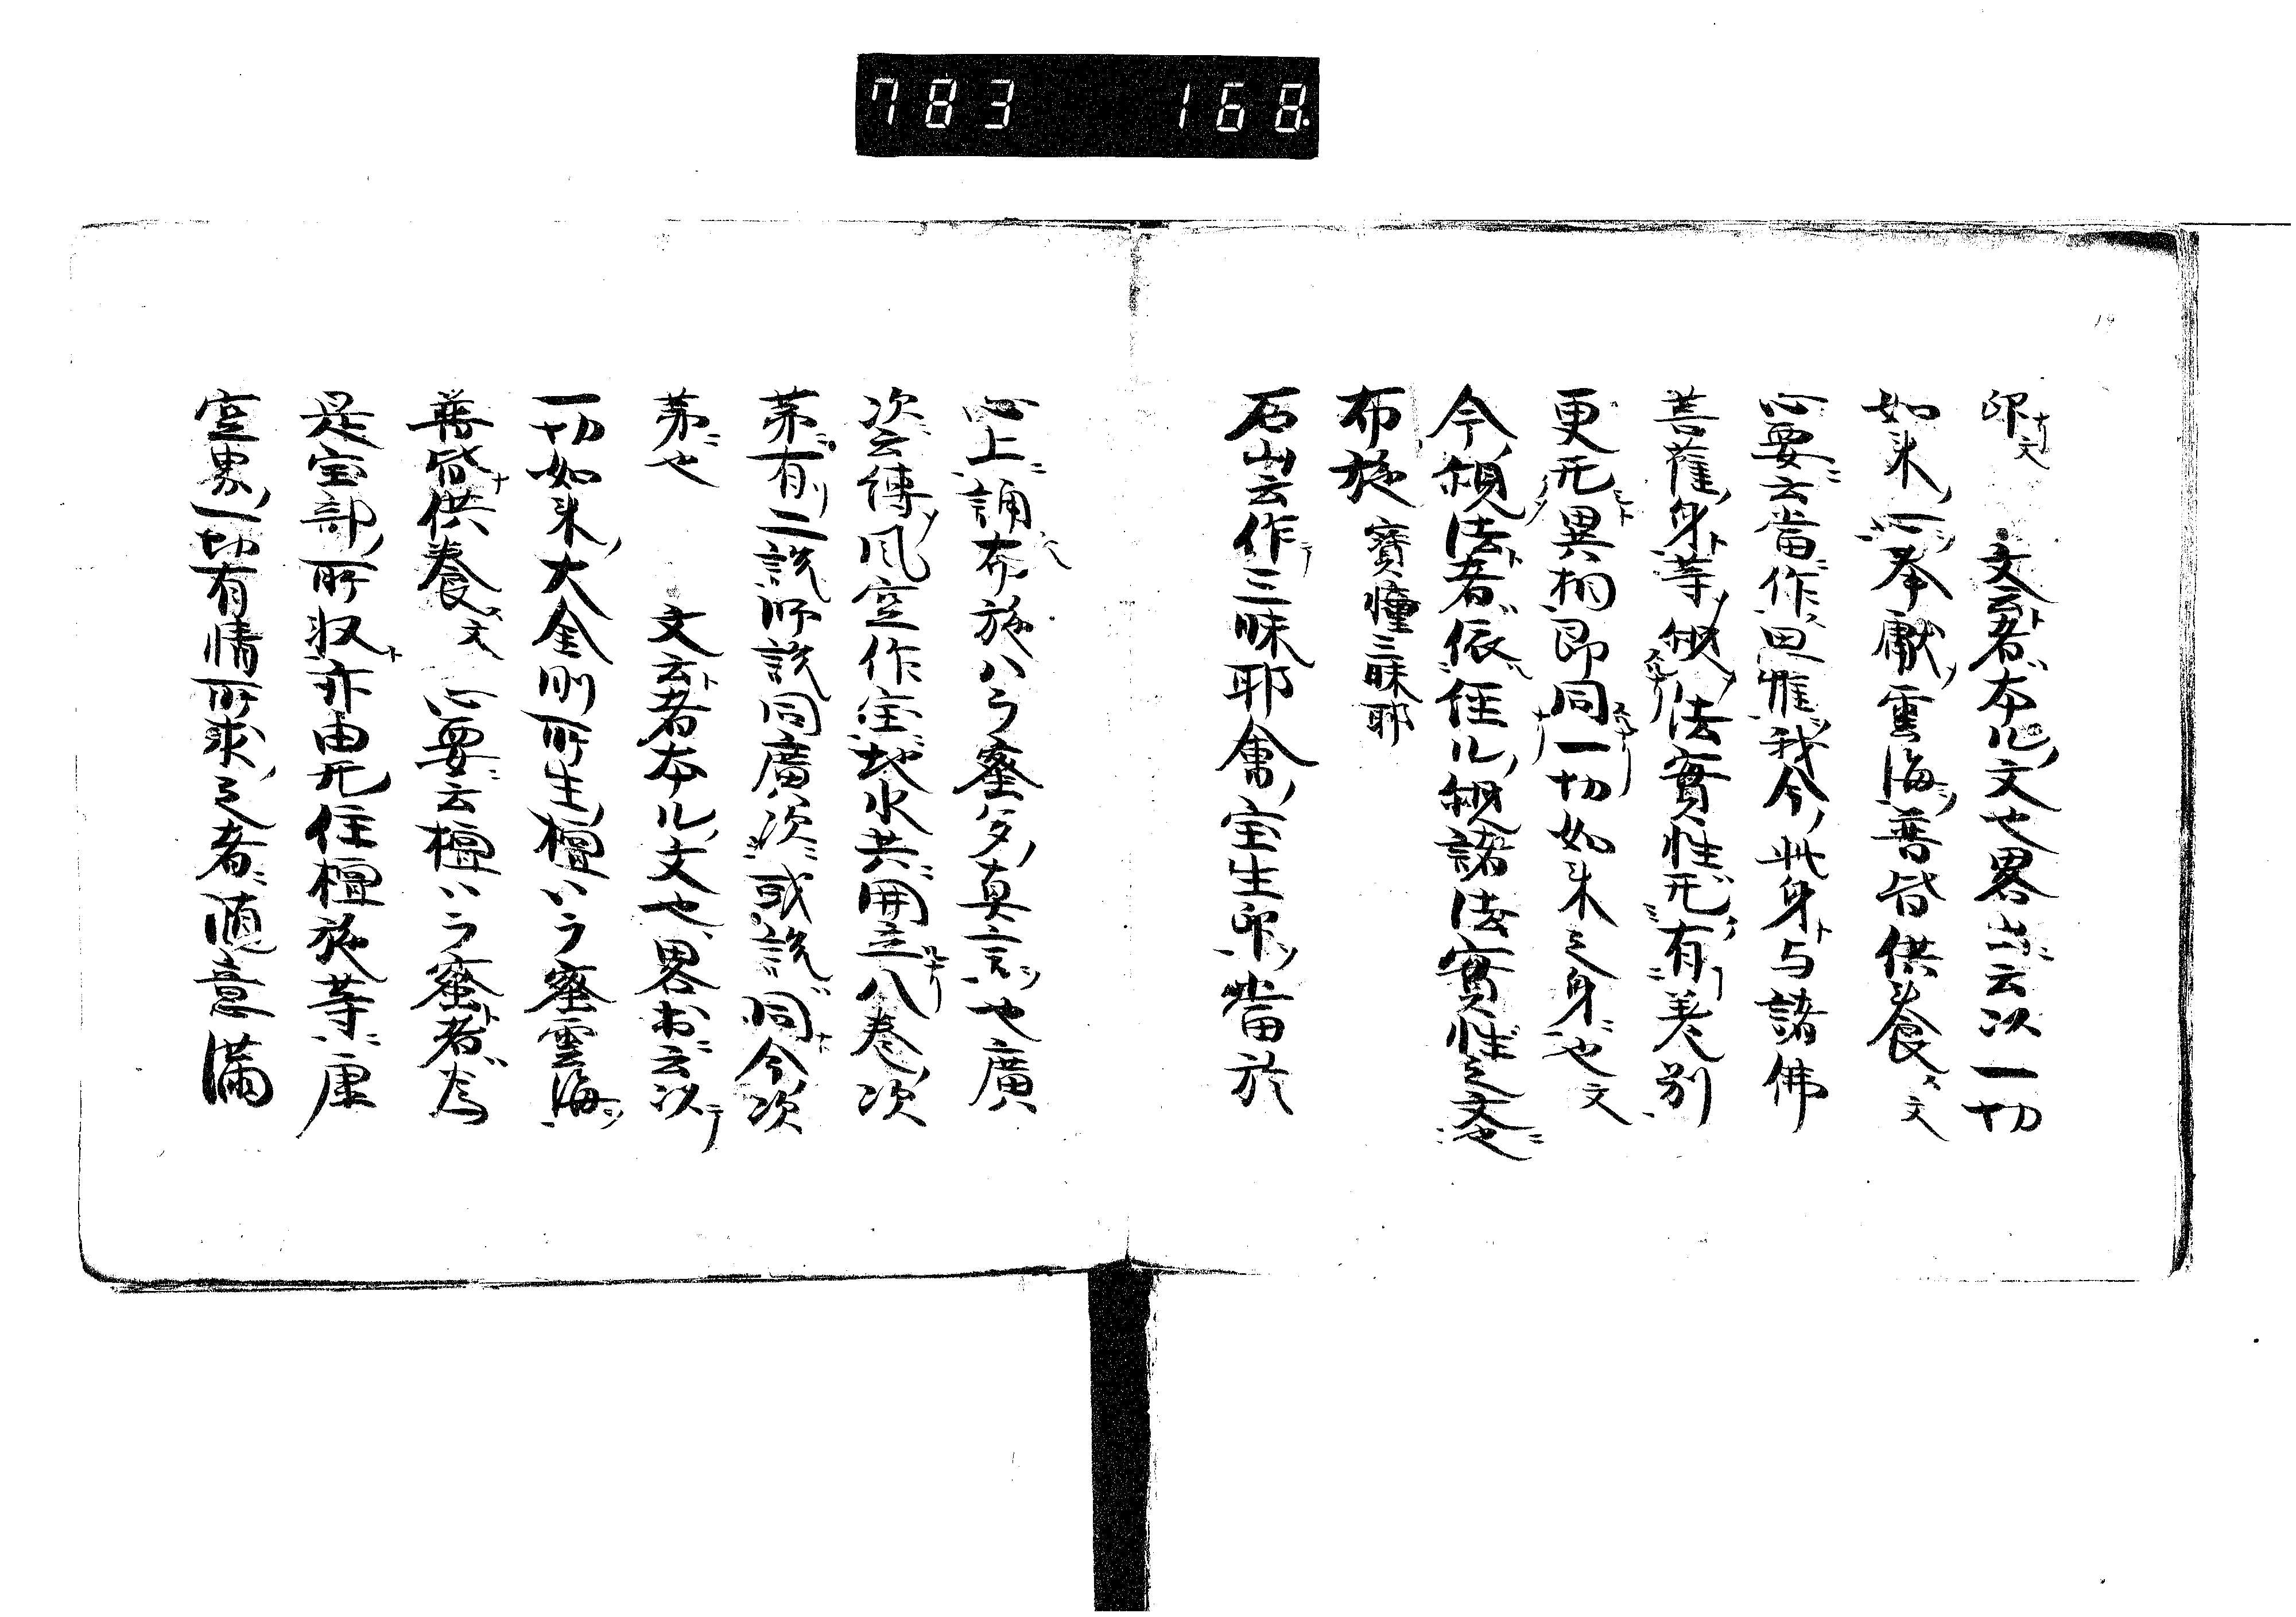 783 168
19
印ナリ文 文云者本儀ノ文也略出云以一切
如来ノ心奉献ノ雲海ヲ普皆供養ス文
心要云當作思惟我今ノ此身与諸佛
菩薩ノ身等観法實性无有差別
更无異相即同一切如来之身也文
今ノ観法者依住儀ノ観諸法實性之文也
布施 寶幢三昧耶
石山云作三昧耶會ノ宝生印當於
心上誦布施ハラ蜜多ノ真言也廣
次云傳風空作宝地水共開立八巻ノ次
第有二説師説同廣次或説同今次
第也 文云者本儀ノ文也略出云以
一切如来ノ大金剛所生ノ檀ハラ蜜雲海
普皆供養ス文 心要云檀ハラ蜜者為
是宝部ノ所収亦由无住檀施等虚
空界ノ一切有情所求之者随意満